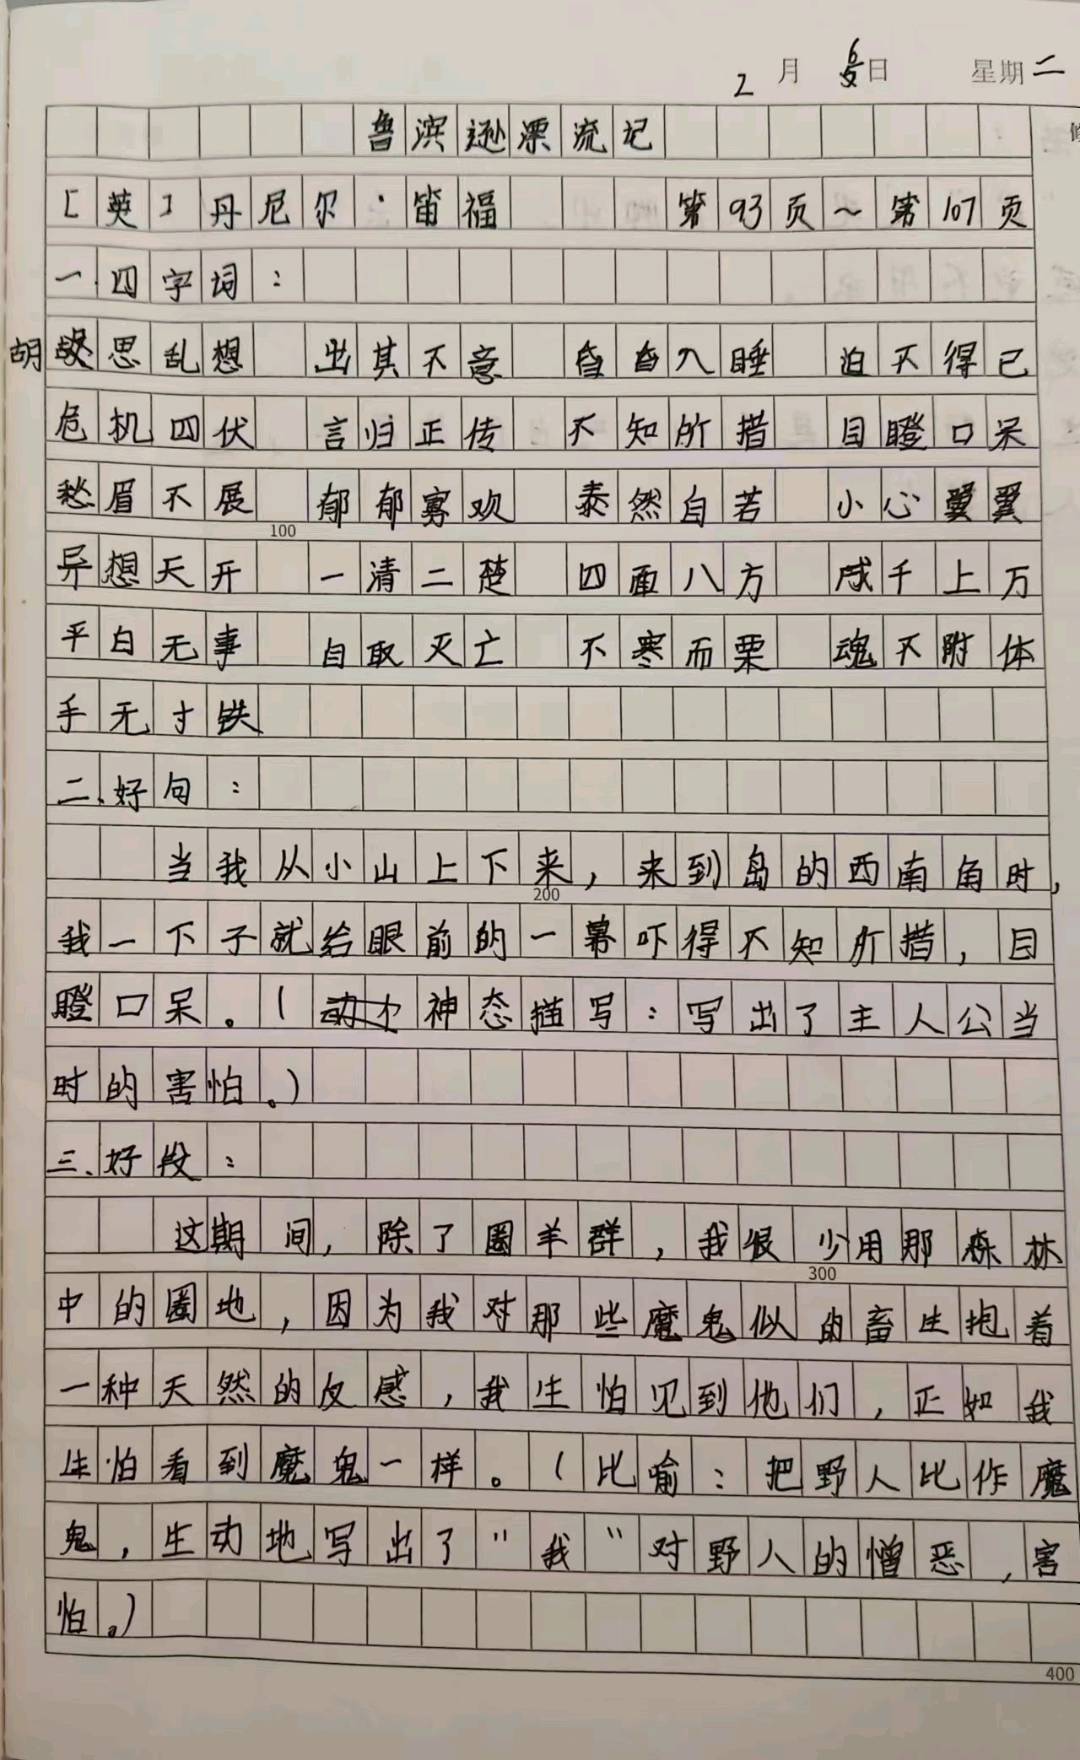 2月6日 星期二
鲁滨逊漂流记
[英]丹尼尔·笛福 第93页~第107页
一.四字词：
胡思乱想 出其不意 昏昏入睡 迫不得已
危机四伏 言归正传 不知所措 目瞪口呆
愁眉不展 郁郁寡欢 泰然自若 小心翼翼
100
异想天开 一清二楚 四面八方 成千上万
平白无事 自取灭亡 不寒而栗 魂不附体
手无寸铁
二、好句：
当我从小山上下来，来到岛的西南角时，
200
我一下子就给眼前的一幕吓得不知所措，目
瞪口呆。（神态描写：写出了主人公当
时的害怕。）
三、好段：
这期间，除了圈羊群，我很少用那森林
300
中的圈地，因为我对那些魔鬼似的畜生抱着
一种天然的反感，我生怕见到他们，正如我
生怕看到魔鬼一样。（比喻：把野人比作魔
鬼，生动地写出了"我"对野人的憎恶，害
怕。）
400